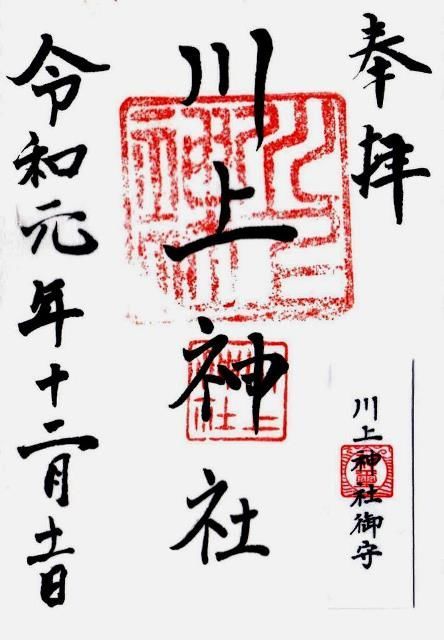 奉拝
川上神社
令和元年十二月十一日
川上神社御守